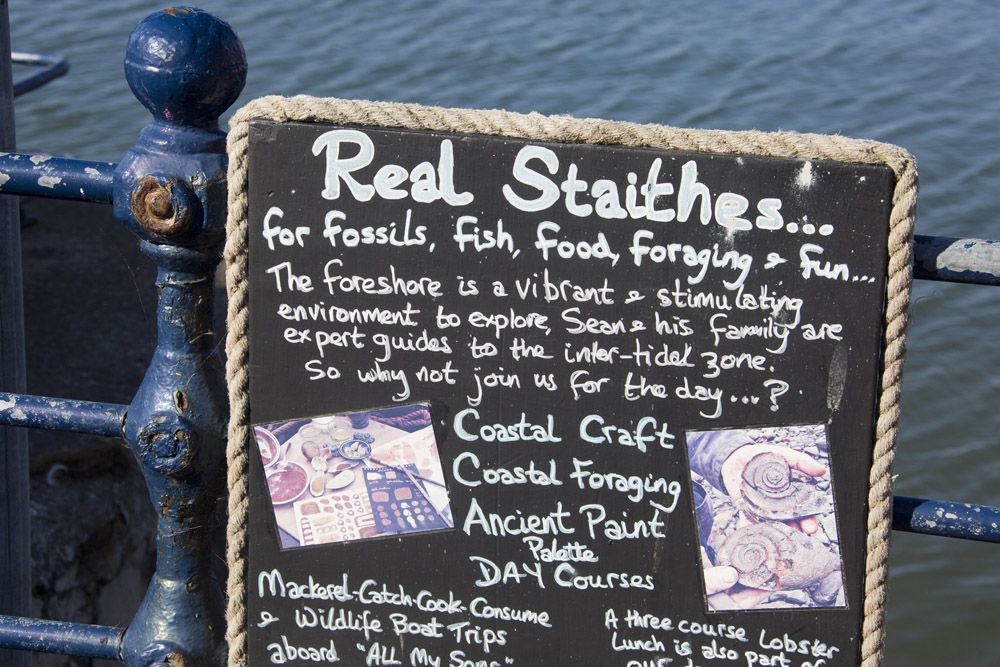 Real Staithes...
for fossils, fish, food, foraging & fun...
The foreshore is a vibrant & stimulating
environment to explore, Sean & his family are
expert guides to the inter-tidal zone.
So why not join us for the day...?
Coastal Craft
Coastal Foraging
Ancient Paint
Palette
DAY Courses
Mackerel-Catch-Cook-Consume
& Wildlife Boat Trips
aboard "ALL My Sons"
A three course Lobster
Lunch is also part of
our